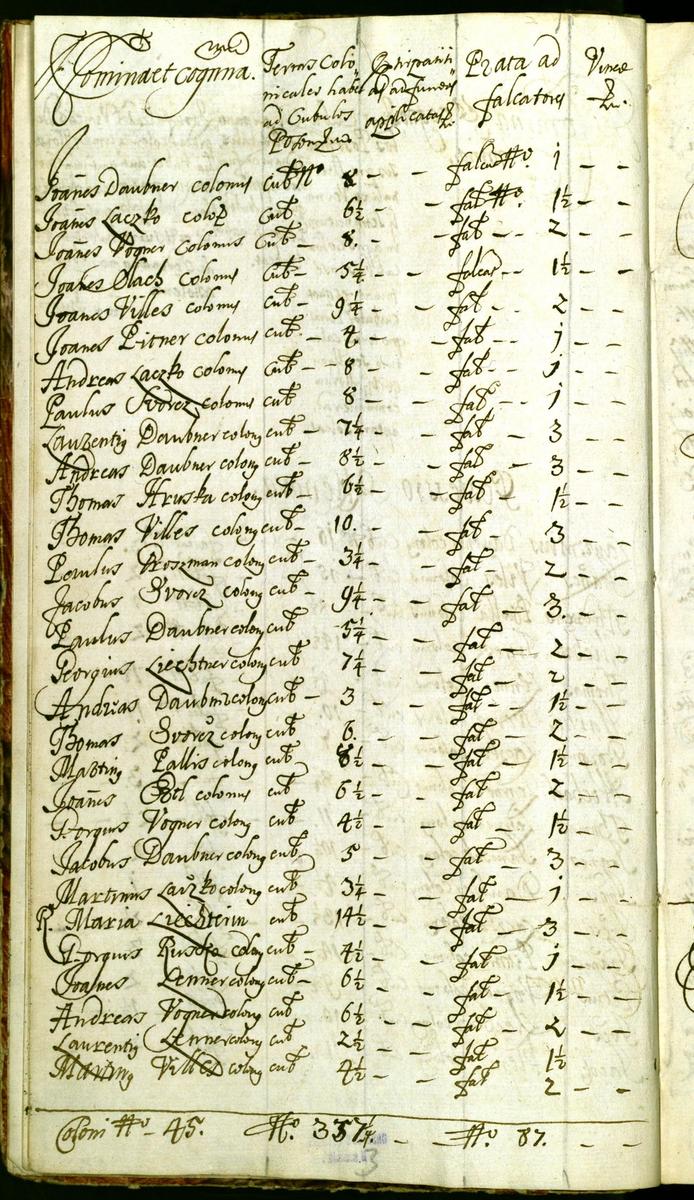 Nomina et cognna. Terras Colo Prata ad Vineæ
nicales habet falcatores
ad Cubulos applicatas
Posonien
Joanes Daubner colonus Cub No 8 - - falcat No. 1 - -
Joanes Laczko colon Cub 6½ - - fal No. 1½ - -
Joanes Vogner Colonus Cub - 8. - - fal - - 2 - -
Joanes Olach colonus Cub - 5¼ - - falcat - - 1½ - -
Joanes Villes colonus Cub - 9¼ - - fal - - 2 - -
Joanes Pitner colonus cub - 4 - - fal - - 1 - -
Andreas Laczko colonus Cub - 8 - - fal - - 1 - -
Paulus Svorcz colonus Cub 8 - - fal - - 1 - -
Laurentig Daubner colong cub - 7¼ - - fal - 3 - -
Andreas Daubner colong cub - 8½ - - fal - 3 - -
Thomas Hruska colong cub - 6½ - - fal - 1½ - -
Thomas Villes colong cub - 10. - - fal - 3 - -
Paulus Proszman colong cub - 3¼ - - fal - 2 - -
Jacobus Svorcz colong cub - 9¼ - - fal - 3. - -
Paulus Daubner colong cub 5¼ - - fal - 2 - -
Georgius Liechtner colong cub 7¼ - - fal - 2 - -
Andreas Daubner colong cub - 3 - - fal - 1½ - -
Thomas Svorcz colong cub 6. - - fal - 2 - -
Marting Pallis colong cub 8½ - - fal - 1½ - -
Joanes colonus cub 6½ - - fal - 2 - -
Georgius Vogner colong cub 4½ - - fal - 1½ - -
Jacobus Daubner colong cub 5 - - fal - 3 - -
Martinus Laczko colong cub 3¼ - - fal - 1 - -
R. Maria Liechtein cub 14½ - - fal - 3 - -
Georgius Ruscka colong cub - 4½ - - fal - 1 - -
Joanes Lenner colong cub - 6½ - - fal - 1½ - -
Andreas Vogner colong cub 6½ - - fal - 2 - -
Laurentig Lenner colong cub 2½ - - fal - 1½ - -
Marting Villes colong cub 4½ - - fal 2 - -
Coloni No - 45. No. 337¼. - - No. 87. - -